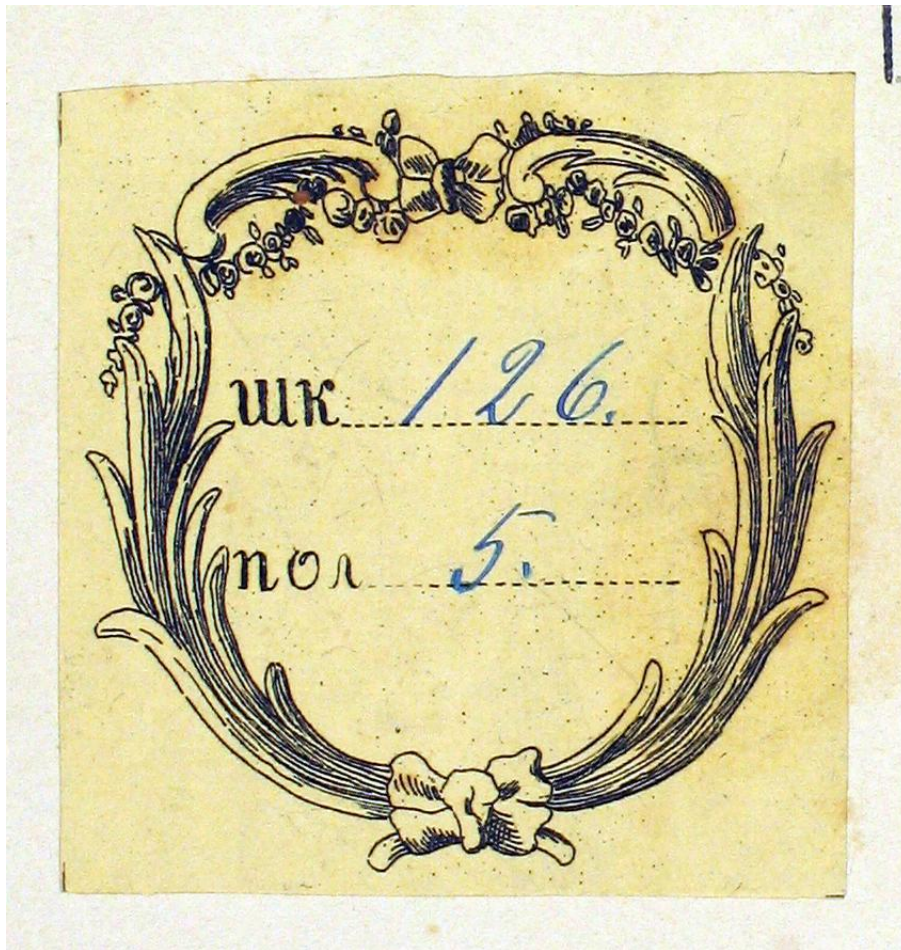 шк 126.
пол 5.